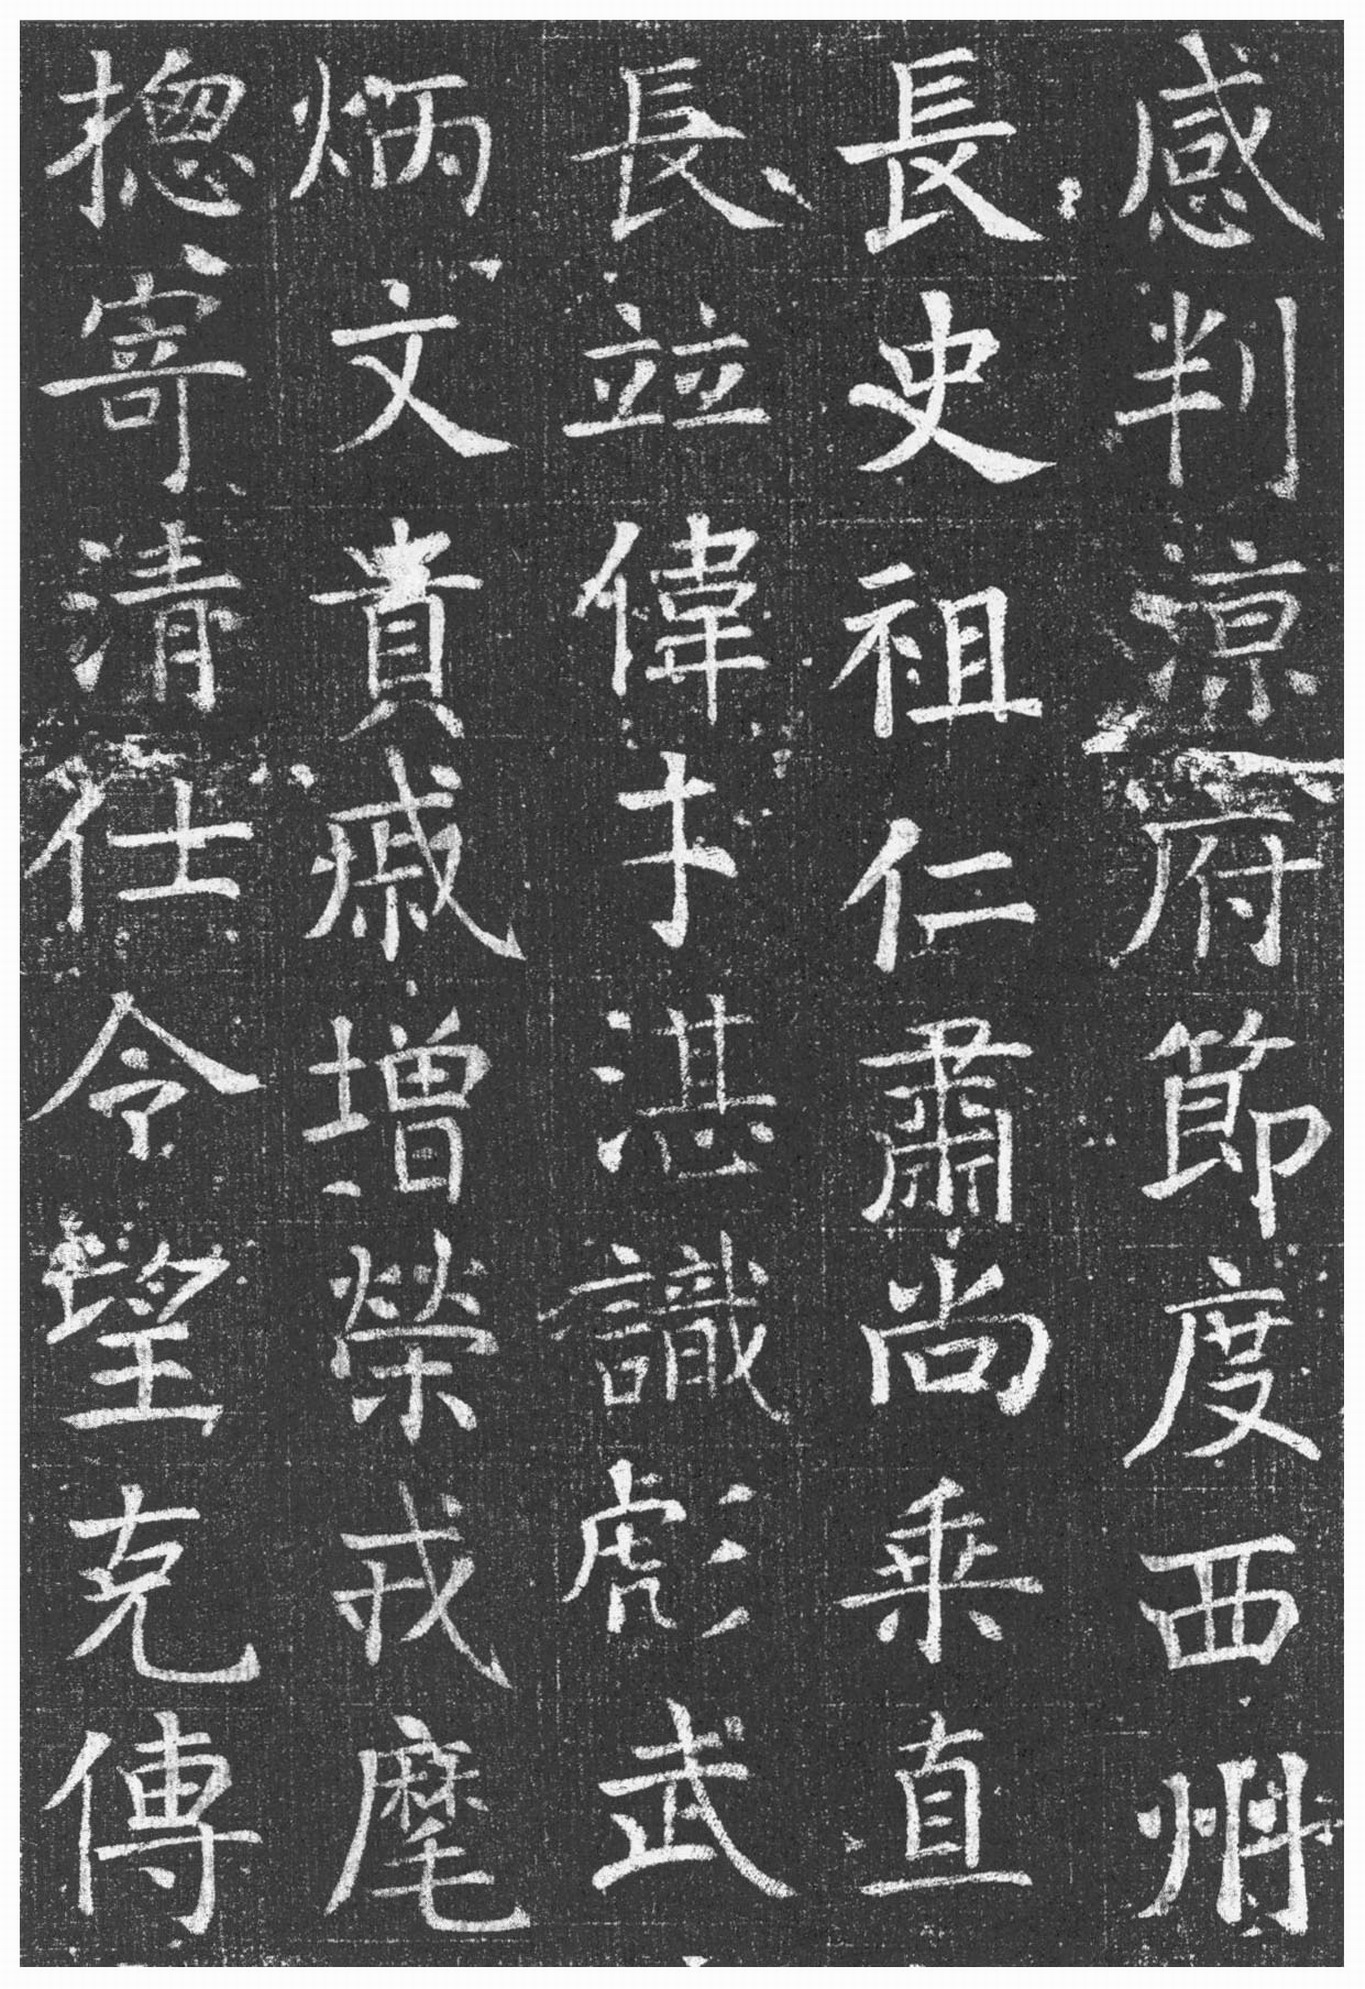 感判涼府節度西州
長史祖仁肅尚乗直
長並偉才湛識虎彪武
炳文貴戚增榮戎麾
揔寄清仕令望克傳